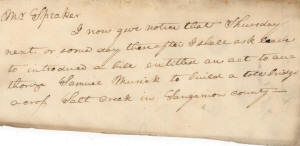 Mr Speaker
I now give notice that Thursday
next or some day thereafter I shall ask leave
to introduce a bill entitled an act to au-
thorize Samuel Musick to build a toll bridge
across Salt Creek in Sangamon county—